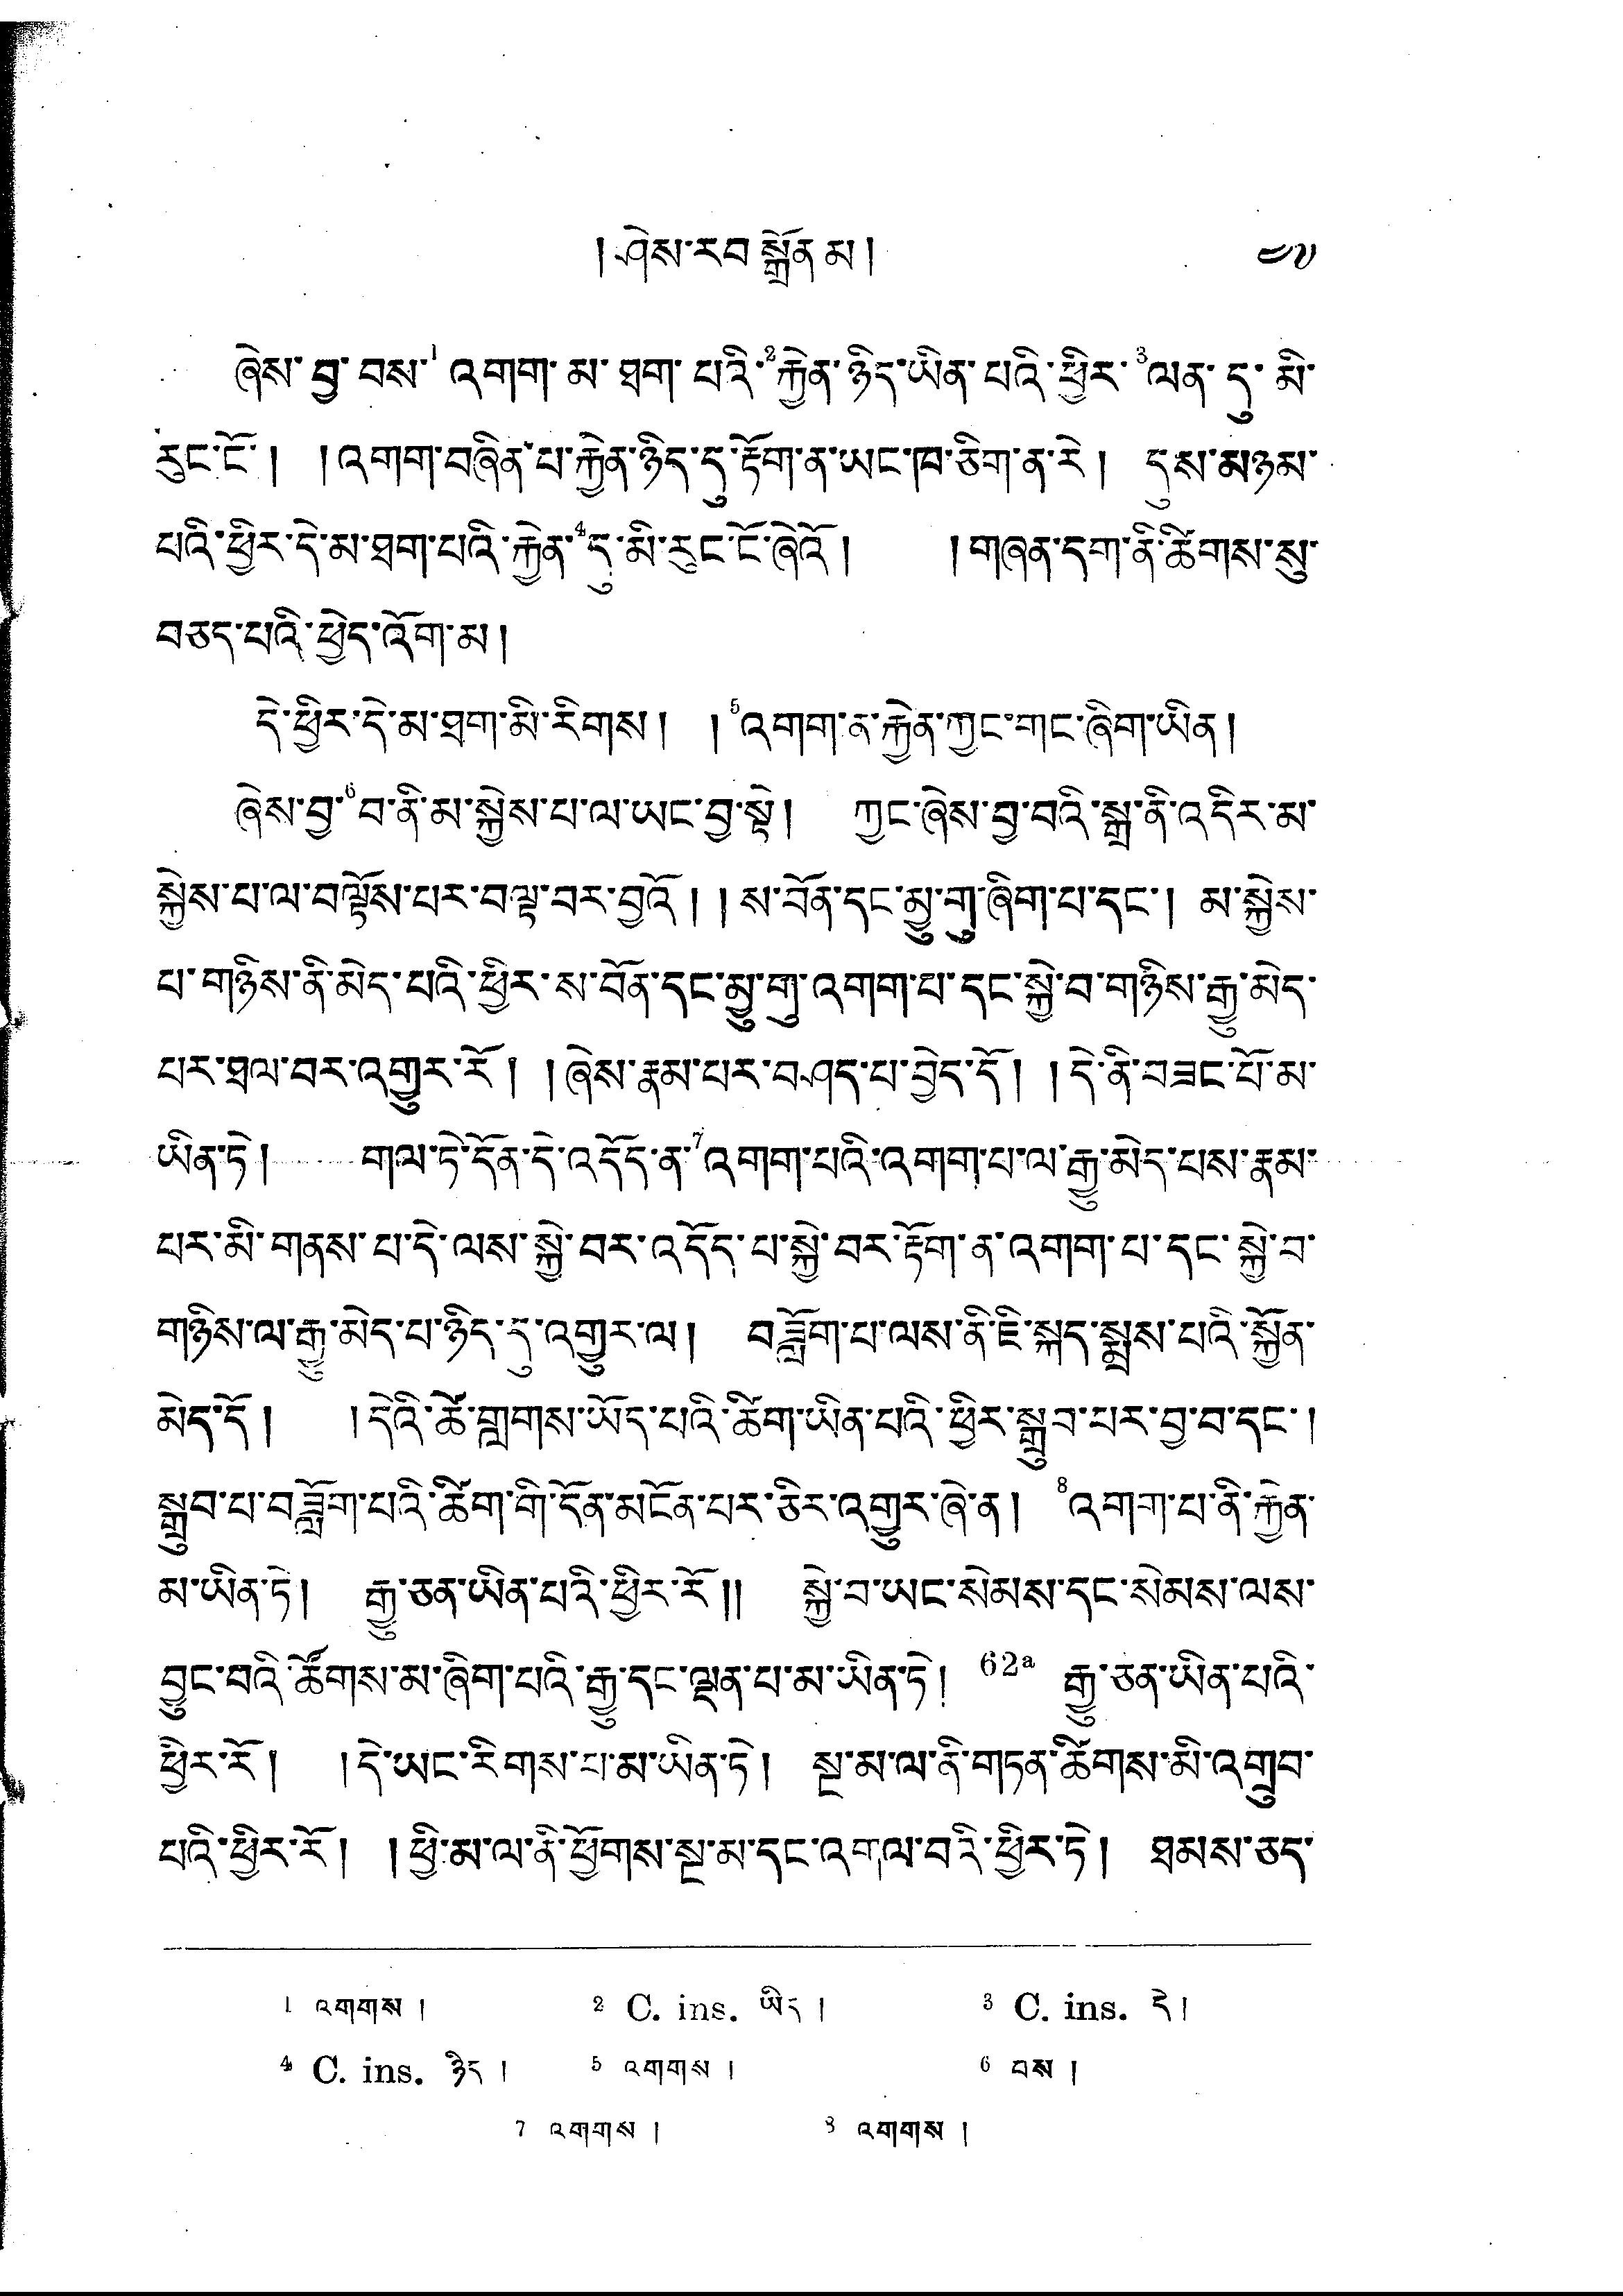 ། ཤེས་རབ སྒྲོན མ །
ཞེས་ བྱ་ བས་¹ འགག་ མ་ ཐག་ པའི་²རྐྱེན་ཉིད་ཡིན་ པའི་ཕྱིར་ ³ལན་ དུ་ མི་
རུང་ངོ་ །  །འགག་བཞིན་པ་རྐྱེན་ཉིད་དུ་རྟོག་ན་ཡང་ཁ་ཅིག་ན་རེ །  དུས་མཉམ་
པའི་ཕྱིར་དེ་མ་ཐག་པའི་རྐྱེན་⁴དུ་མི་རུང་ངོ་ཞེའོ །  །གཞན་དག་ནི་ཚིགས་སུ་
བཅད་པའི་ཕྱེད་འོག་མ །
དེ་ཕྱིར་དེ་མ་ཐག་མི་རིགས །  །⁵འགག་ན་རྐྱེན་ཀྱང་གང་ཞིག་ཡིན །
ཞེས་བྱ་⁶བ་ནི་མ་སྐྱེས་པ་ལ་ཡང་བྱ་སྟེ །  ཀྱང་ཞེས་བྱ་བའི་སྒྲ་ནི་འདིར་མ་
སྐྱེས་པ་ལ་བལྟོས་པར་བལྟ་བར་བྱའོ ། །ས་བོན་དང་མྱུ་གུ་ཞིག་པ་དང་ །  མ་སྐྱེས་
པ་གཉིས་ནི་མེད་པའི་ཕྱིར་ས་བོན་དང་མྱུ་གུ་འགག་པ་དང་སྐྱེ་བ་གཉིས་རྒྱུ་མེད་
པར་ཐལ་བར་འགྱུར་རོ །  །ཞེས་རྣམ་པར་བཤད་པ་བྱེད་དོ །  །དེ་ནི་བཟང་པོ་མ་
ཡིན་ཏེ །  གལ་ཏེ་དོན་དེ་འདོད་ན་⁷འགག་པའི་འགག་པ་ལ་རྒྱུ་མེད་པས་རྣམ་
པར་མི་གནས་པ་དེ་ལས་སྐྱེ་བར་འདོད་པ་སྐྱེ་བར་རྟོག་ན་འགག་པ་དང་སྐྱེ་བ་
གཉིས་ལ་རྒྱུ་མེད་པ་ཉིད་དུ་འགྱུར་ལ །  བཟློག་པ་ལས་ནི་ཇི་སྐད་སྨྲས་པའི་སྐྱོན་
མེད་དོ །  །དེའི་ཚེ་གླགས་ཡོད་པའི་ཚིག་ཡིན་པའི་ཕྱིར་སྒྲུབ་པར་བྱ་བ་དང་ །
སྒྲུབ་པ་བཟློག་པའི་ཚིག་གི་དོན་མངོན་པར་ཅིར་འགྱུར་ཞེ་ན །  ⁸འགག་པ་ནི་རྐྱེན་
མ་ཡིན་ཏེ །  རྒྱུ་ཅན་ཡིན་པའི་ཕྱིར་རོ །།  སྐྱེ་བ་ཡང་སེམས་དང་སེམས་ལས་
བྱུང་བའི་ཚོགས་མ་ཞིག་པའི་རྒྱུ་དང་ལྡན་པ་མ་ཡིན་ཏེ །  62ª  རྒྱུ་ཅན་ཡིན་པའི་
ཕྱིར་རོ །  །དེ་ཡང་རིགས་པ་མ་ཡིན་ཏེ །  སྔ་མ་ལ་ནི་གཏན་ཚིགས་མི་འགྲུབ་
པའི་ཕྱིར་རོ །  །ཕྱི་མ་ལ་ནི་ཕྱོགས་སྔ་མ་དང་འགལ་བའི་ཕྱིར་ཏེ །  ཐམས་ཅད་
¹ འགགས །  ² C. ins. ཡིད །  ³ C. ins. དེ །
⁴ C. ins. ཉིད །  ⁵ འགགས །  ⁶ བས །
⁷ འགགས །  ⁸ འགགས །